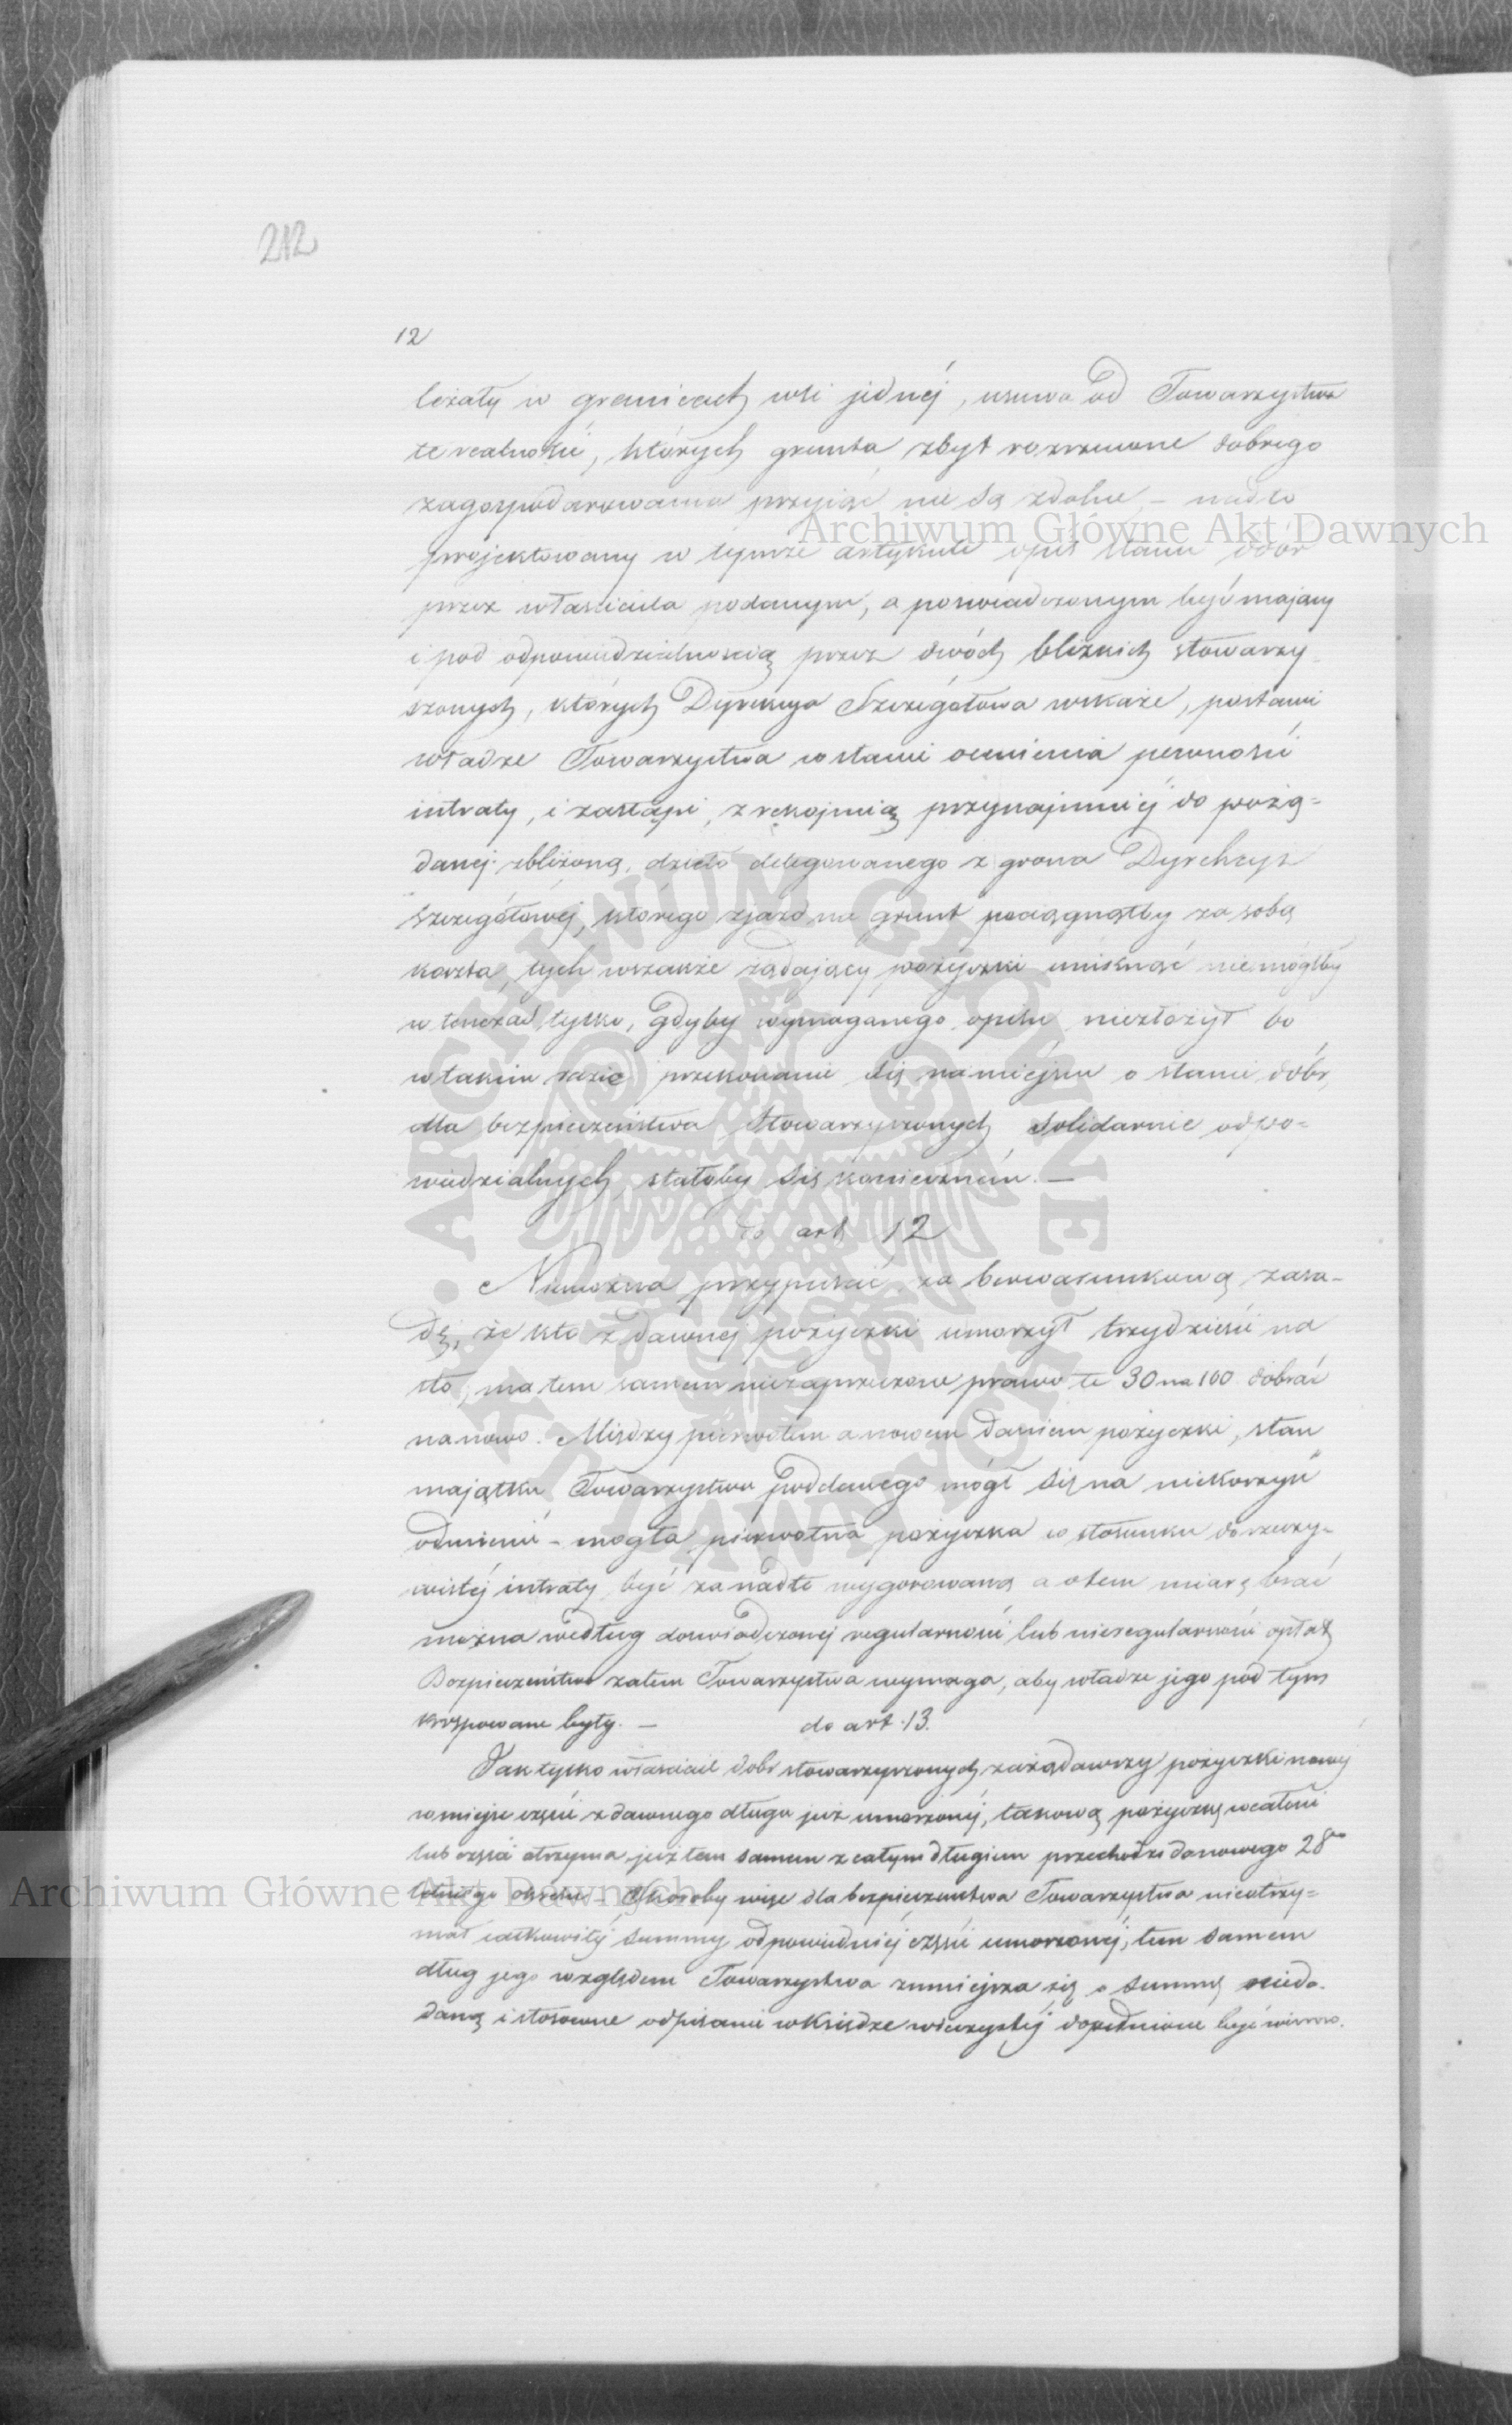 212
12
leżały w granicach wsi jednéj, usuwa od Towarzystwa
te realności, których grunta zbyt rozrzucone dobrego
zagospodarowania przyjąć nie są zdolne – nadto
projektowany w tymże artykule opis stanu dóbr
przez właściciela podanym, a poświadczonym być mający
i pod odpowiedzialnością przez dwóch bliźnich stowarzy-
szonych, których Dyrekcya Szczegółowa wskaże, postawi
władze Towarzystwa w stanie ocenienia pewności
intraty, i zastąpi, z rękojmią przynajmniéj do pożą=
danéj zbliżoną, dzieło delegowanego z grona Dyrekcyi
Szczegółowéj, którego zjazd na grunt pociągnąłby za sobą
koszta, tych wszakże żądający pożyczki uniknąć niemógłby
w tenczas tylko, gdyby wymaganego opisu niezłożył bo
w takim razie przekonanie się na miejscu o stanie dóbr
dla bezpieczeństwa Stowarzyszonych Solidarnie odpo=
wiedzialnych, stałoby się koniecznem. —
do art 12
Niemożna przypuścić za bezwarunkową zasa-
dę, że kto z dawnéj pożyczki umorzył trzydzieści na
sto, ma tem samem niezaprzeczone prawo te 30 na 100 dobrać
na nowo. Między pierwotnem a nowem daniem pożyczki, stan
majątku Towarzystwu poddanego mógł się na niekorzyść
odmienić – mogła pierwotna pożyczka w stosunku do rzeczy=
wistéj intraty być zanadto wygórowaną a o tem miarę brać
można według doświadczonéj regularności lub nieregularności opłat
Bezpieczeństwo zatem Towarzystwa wymaga, aby władze jego pod tym
krępowane były. —
do art. 13.
Jak tylko właściciel dóbr stowarzyszonych zażądawszy pożyczki nowéj
w miejsce części z dawnego długu już umorzonéj, takową pożyczkę w całości
lub części otrzyma, już tem samem z całym długiem przechodzi do nowego 28
letniego okresu – Skoroby więc dla bezpieczeństwa Towarzystwa nieotrzy=
mał całkowitéj summy odpowiedniéj części umorzonéj, tem samem
dług jego względem Towarzystwa zmniejsza się o summę niedo-
daną i stosowne odpisanie w Księdze wieczystéj dopełnione być winno.
Archiwum Główne Akt Dawnych
ARCHIWUM GŁÓWNE AKT DAWNYCH
Archiwum Główne Akt Dawnych
Archiwum Główne Akt Dawnych